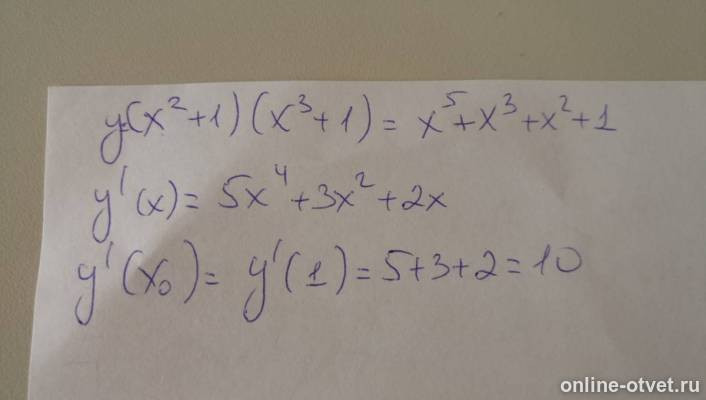 y=(x²+1)(x³+1)= x⁵+x³+x²+1
y'(x)= 5x⁴+3x²+2x
y'(x₀)= y'(1)=5+3+2=10
online-otvet.ru